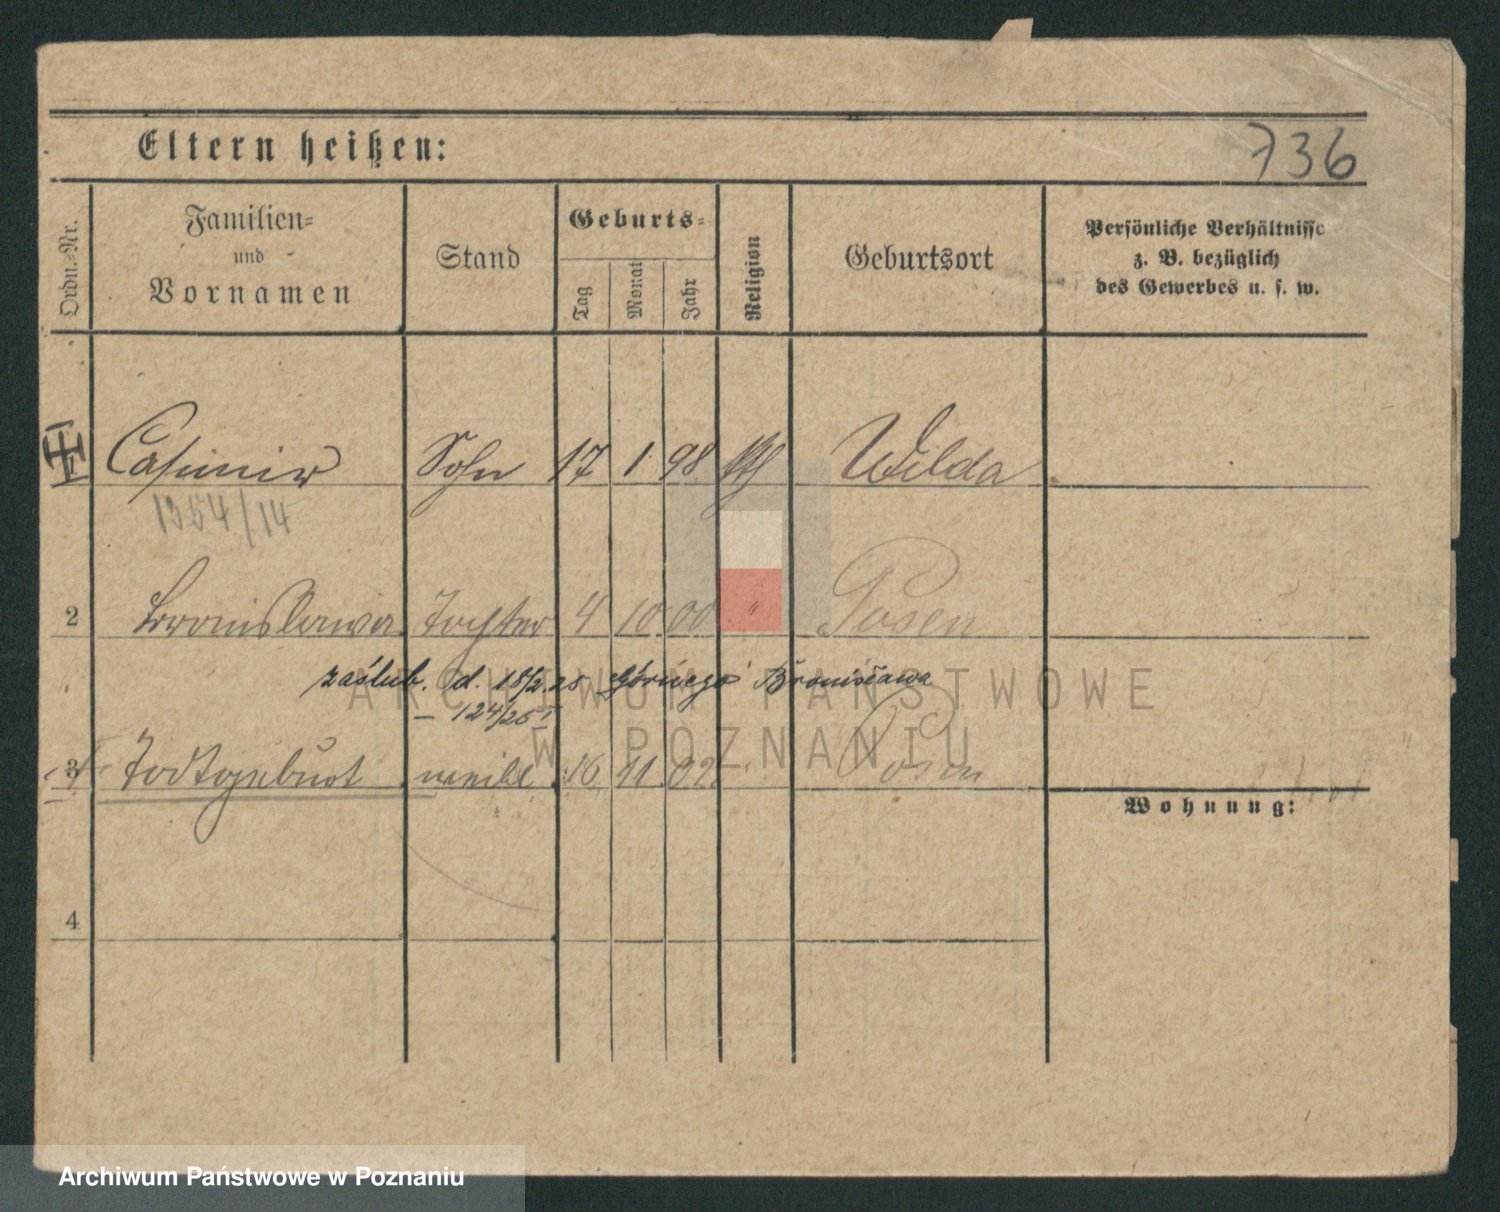 Eltern heißen:
736
Ordn.=Nr.
Familien=
und
Vornamen
Stand
Geburts=
Tag
Monat
Jahr
Religion
Geburtsort
Persönliche Verhältnisse
z. B. bezüglich
des Gewerbes u. s. w.
1 Casimir Sohn 17 1 98 kth Wilda
1354/14
2 Bronislawa Tochter 4 10 00 " Posen
zaślub. d. 18/2.25 Górnego Bronisława
– 124/25 I
3 Todtgeburt weibl 16 11 02 Posen
Wohnung:
4
ARCHIWUM PAŃSTWOWE
W POZNANIU
Archiwum Państwowe w Poznaniu